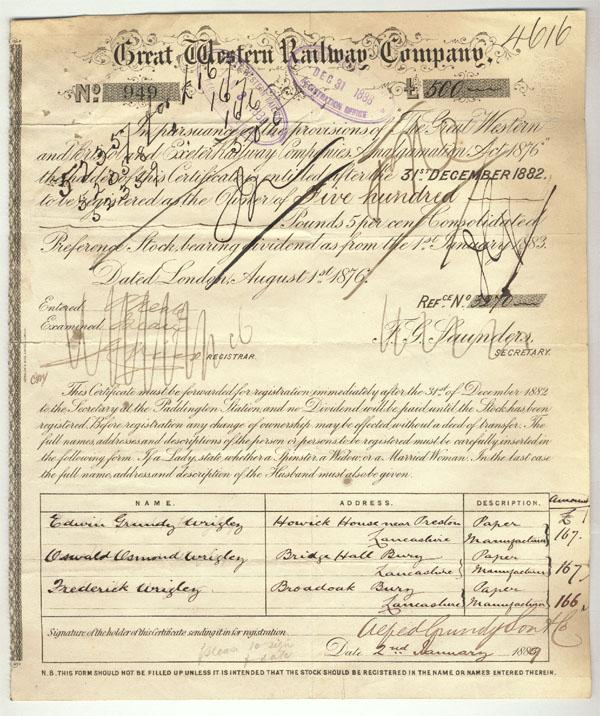 4616
Great Western Railway Company.
No. 949
£ 500
DEC 31 1883
REGISTRATION OFFICE
In pursuance of the provisions of "The Great Western
and Bristol and Exeter Railway Companies Amalgamation Act 1876"
the holder of this Certificate is entitled after the 31ST DECEMBER 1882.
to be registered as the Owner of Five hundred
Pounds 5 per cent Consolidated
Preference Stock, bearing dividend as from the 1st January 1883.
Dated London, August 1st 1876.
Entered
REFCE No. 3270
Examined
F. G. Saunders.
REGISTRAR.
SECRETARY.
This Certificate must be forwarded for registration immediately after the 31st of December 1882
to the Secretary at the Paddington Station, and no Dividend will be paid until the Stock has been
registered. Before registration any change of ownership may be effected without a deed of transfer. The
full names, addresses and descriptions of the person or persons to be registered must be carefully inserted in
the following form. If a Lady, state whether a Spinster, a Widow, or a Married Woman. In the last case
the full name, address and description of the Husband must also be given.
NAME. ADDRESS. DESCRIPTION. Amount
Edwin Grundy Wrigley Howick House near Preston Paper £
Lancashire Manufacturer 167
Oswald Osmond Wrigley Bridge Hall Bury Paper
Lancashire Manufacturer 167
Frederick Wrigley Broadoak Bury Paper
Lancashire Manufacturer 166
Signature of the holder of this Certificate sending it in for registration. Alfred Grundy Son & Co
Please to sign & date
Date 2nd January 1889
N.B. THIS FORM SHOULD NOT BE FILLED UP UNLESS IT IS INTENDED THAT THE STOCK SHOULD BE REGISTERED IN THE NAME OR NAMES ENTERED THEREIN.